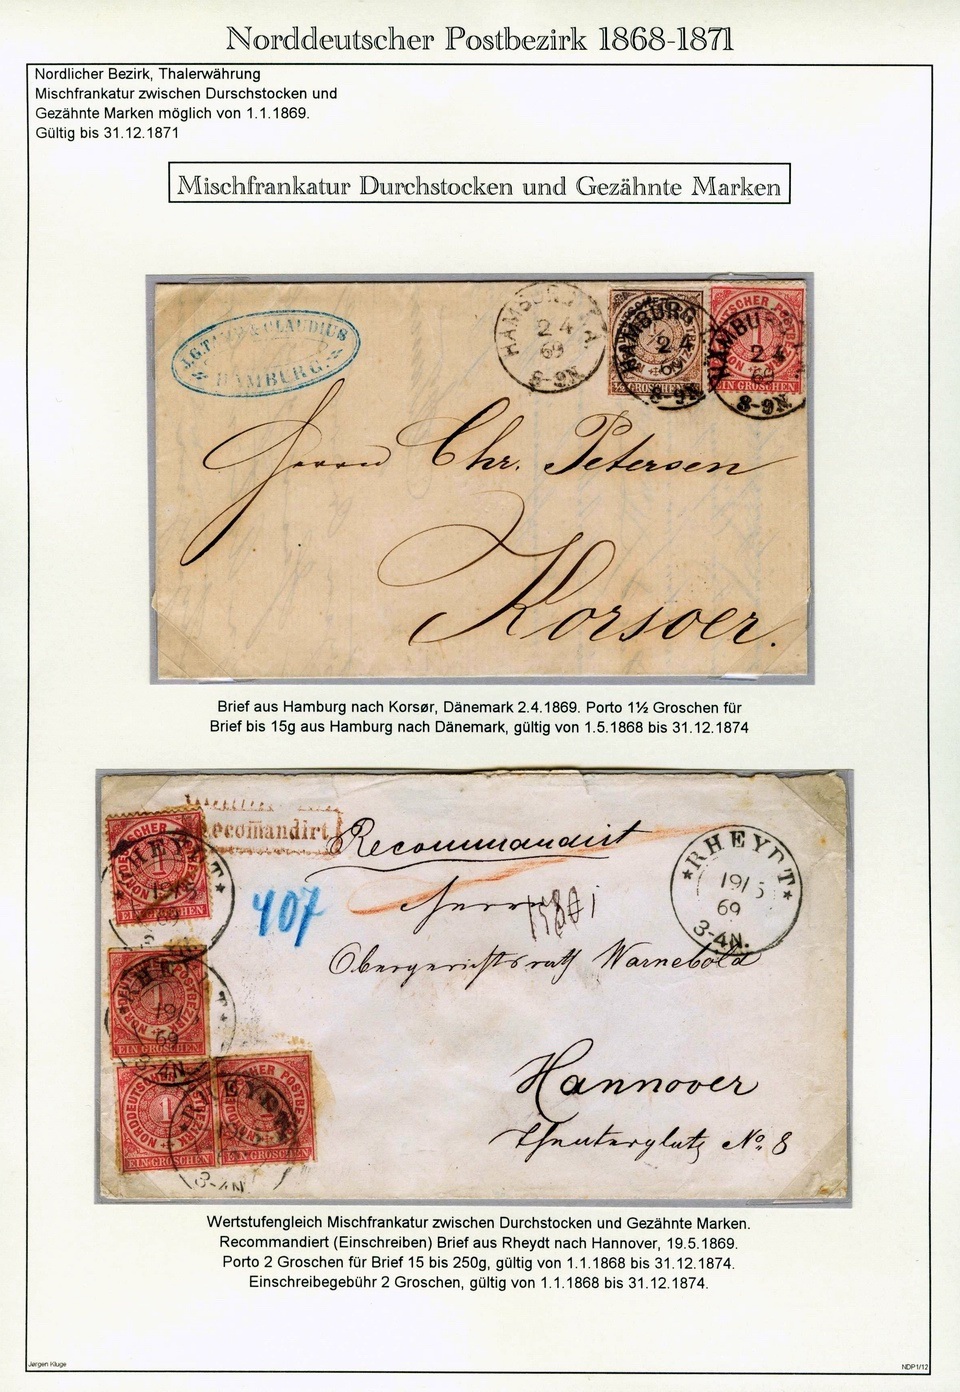 Norddeutscher Postbezirk 1868-1871
Nordlicher Bezirk, Thalerwährung
Mischfrankatur zwischen Durschstocken und
Gezähnte Marken möglich von 1.1.1869.
Gültig bis 31.12.1871
Mischfrankatur Durchstocken und Gezähnte Marken
& CLAUDIUS
HAMBURG.
HAMBURG
2 4
69
8-9N
HAMBURG
2 4
69
8-9N.
GROSCHEN
HAMBURG
2 4
69
8-9N.
1
EIN GROSCHEN
Herrn Chr. Petersen
Korsoer.
Brief aus Hamburg nach Korsør, Dänemark 2.4.1869. Porto 1½ Groschen für
Brief bis 15g aus Hamburg nach Dänemark, gültig von 1.5.1868 bis 31.12.1874
Recomandirt
Recommandirt
RHEYDT
19/5
69
3-4N.
407
Herrn
Obergerichtsrath Warnebold
Hannover
Theaterplatz No. 8
1
EIN GROSCHEN
RHEYDT
19/5
69
NORDDEUTSCHER POSTBEZIRK
1
EIN GROSCHEN
NORDDEUTSCHER POSTBEZIRK
1
EIN GROSCHEN
RHEYDT
3-4N.
Wertstufengleich Mischfrankatur zwischen Durchstocken und Gezähnte Marken.
Recommandiert (Einschreiben) Brief aus Rheydt nach Hannover, 19.5.1869.
Porto 2 Groschen für Brief 15 bis 250g, gültig von 1.1.1868 bis 31.12.1874.
Einschreibegebühr 2 Groschen, gültig von 1.1.1868 bis 31.12.1874.
Jørgen Kluge
NDP1/12